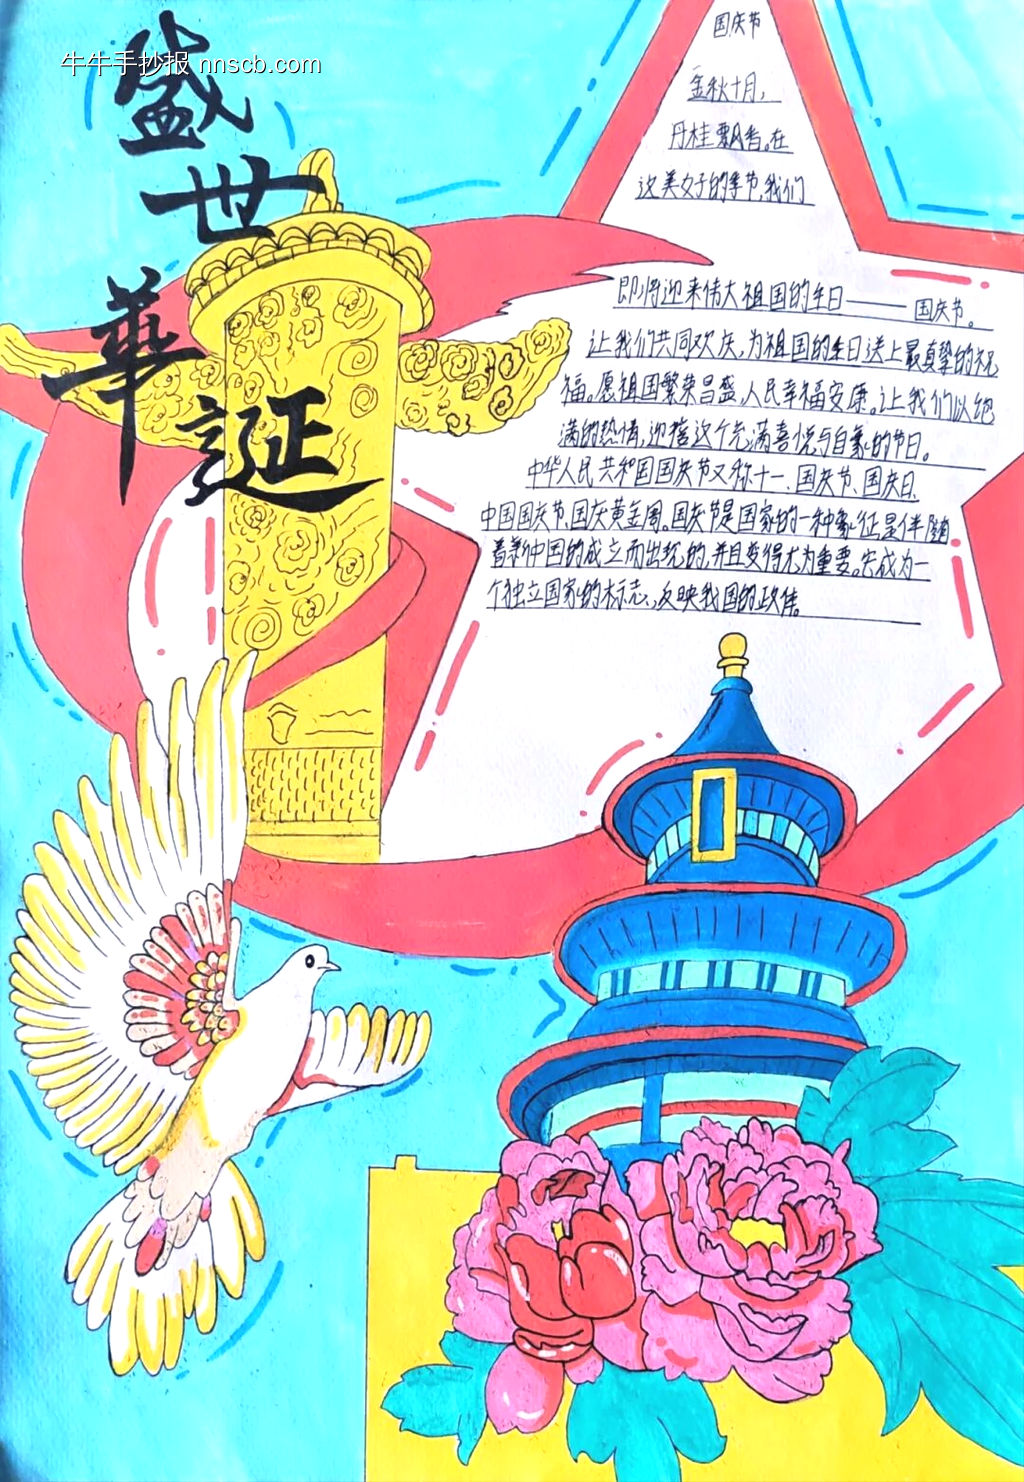 牛牛手抄报 nnscb.com
盛
世
華
誕
国庆节
金秋十月，
丹桂飘香。在
这美好的季节，我们
即将迎来伟大祖国的生日——国庆节。
让我们共同欢庆，为祖国的生日送上最真挚的祝
福。愿祖国繁荣昌盛，人民幸福安康。让我们以饱
满的热情，迎接这个充满喜悦与自豪的节日。
中华人民共和国国庆节又称十一、国庆节、国庆日、
中国国庆节、国庆黄金周。国庆节是国家的一种象征，是伴随
着新中国的成立而出现的，并且变得尤为重要。它成为一
个独立国家的标志，反映我国的政体。